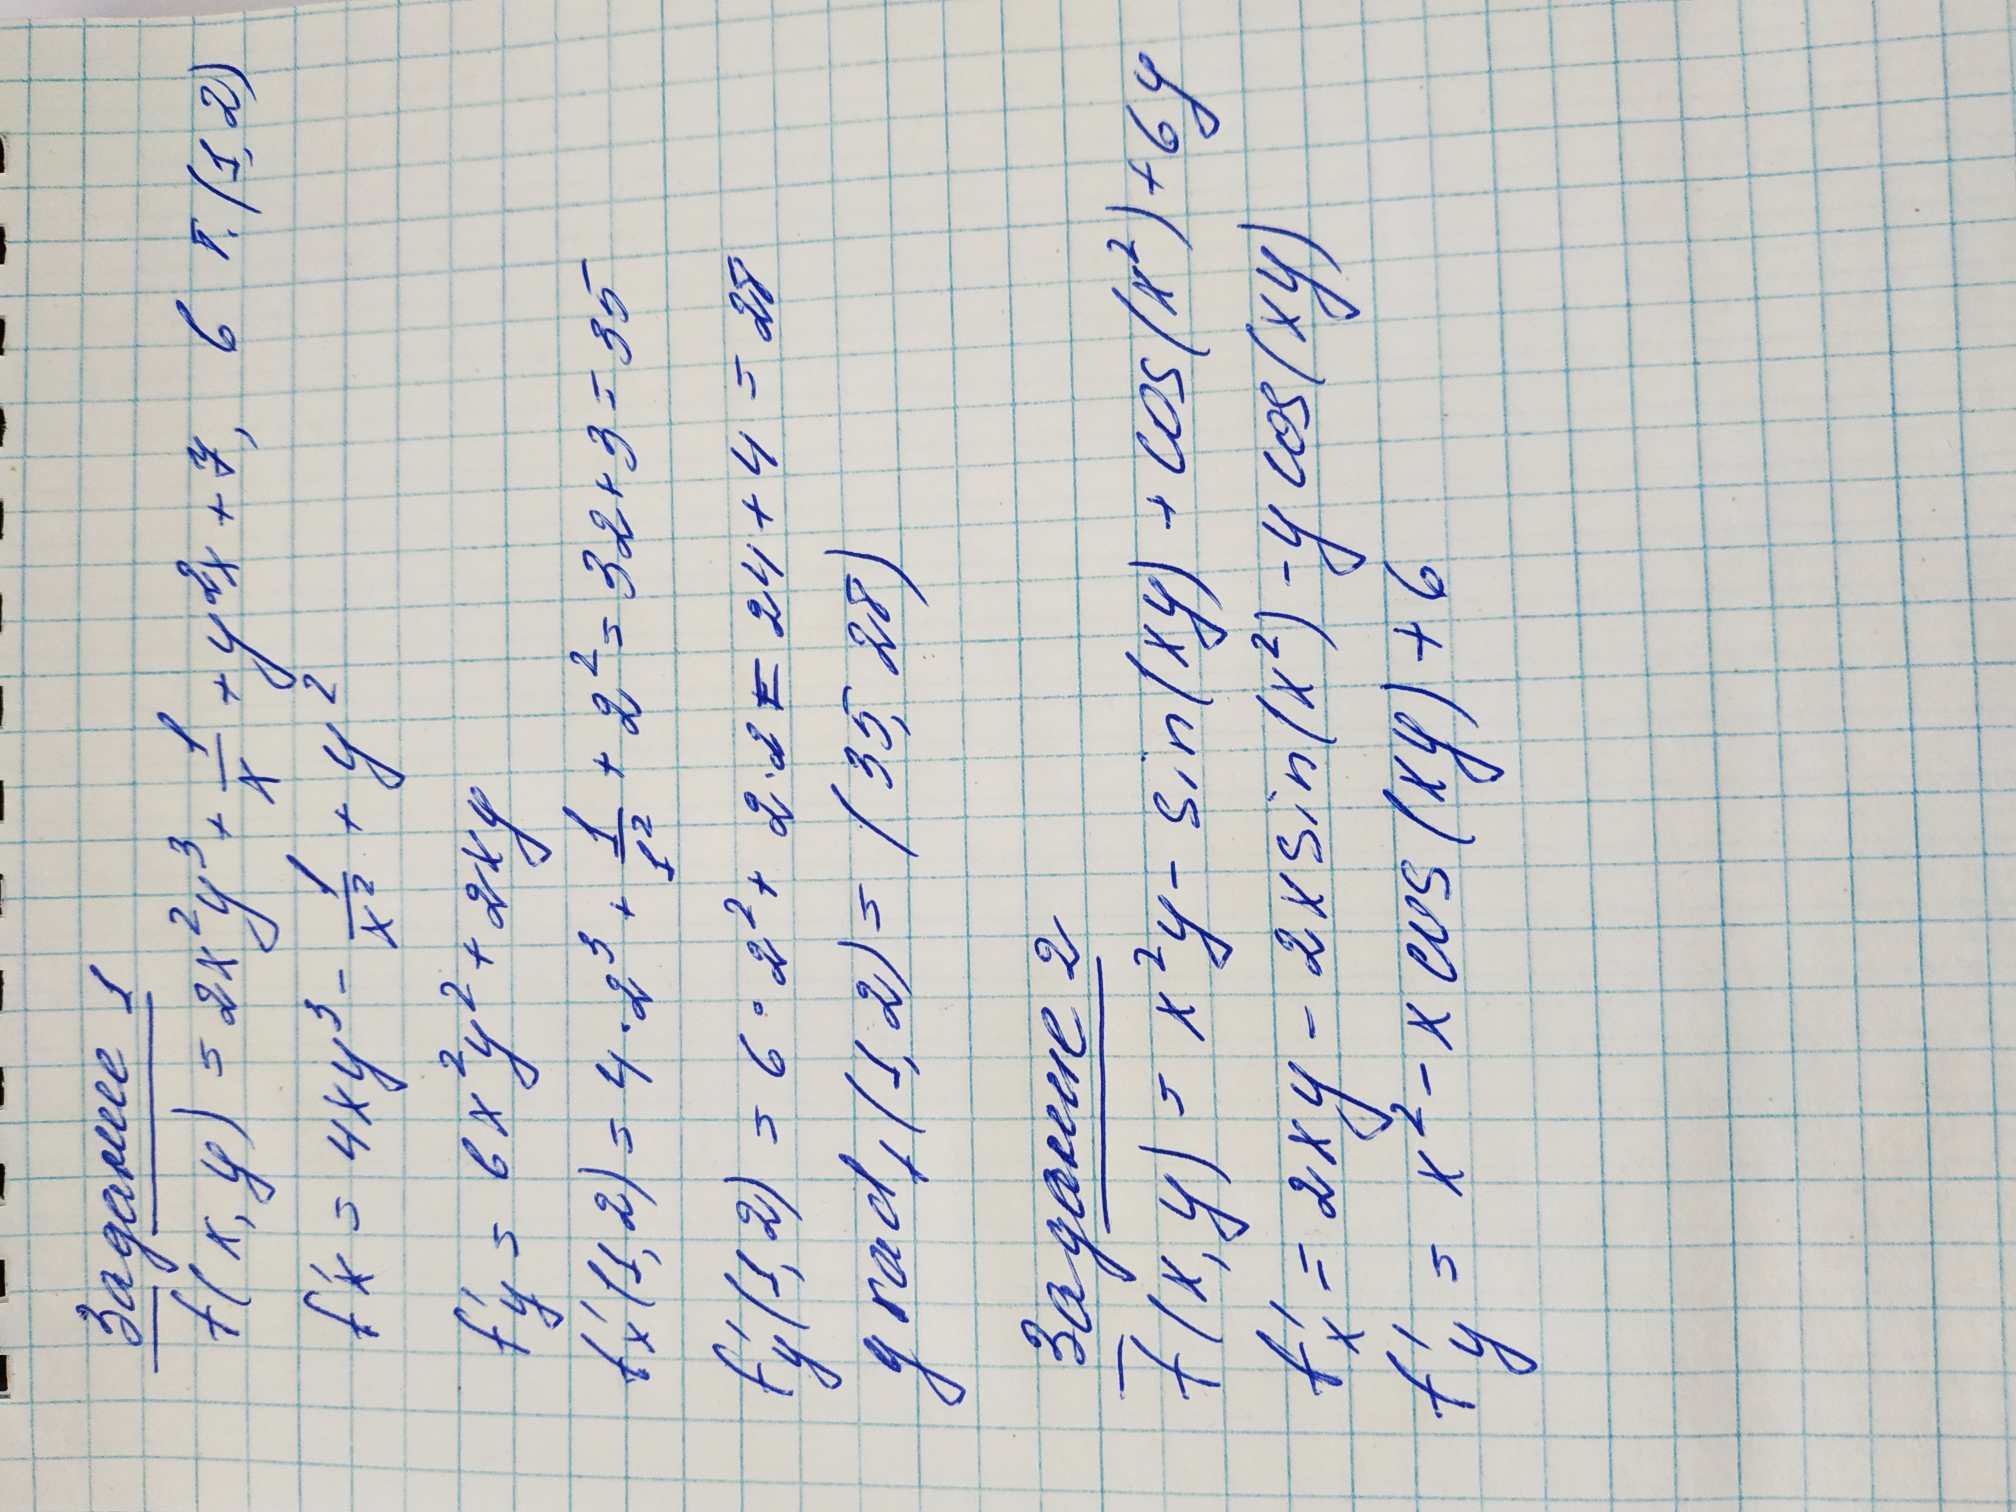 Задание 1
f(x, y) = 2x²y³ + 1/x + y²x + 7, в т. (1, 2)
f'x = 4xy³ - 1/x² + y²
f'y = 6x²y² + 2xy
f'x(1, 2) = 4 · 2³ + 1/1² + 2² = 32 + 3 = 35
f'y(1, 2) = 6 · 2² + 2 · 2 = 24 + 4 = 28
grad f (1, 2) = (35, 28)
Задание 2
f(x, y) = x²y - sin(xy) + cos(x²) + 6y
f'x = 2xy - 2x sin(x²) - y cos(xy)
f'y = x² - x cos(xy) + 6